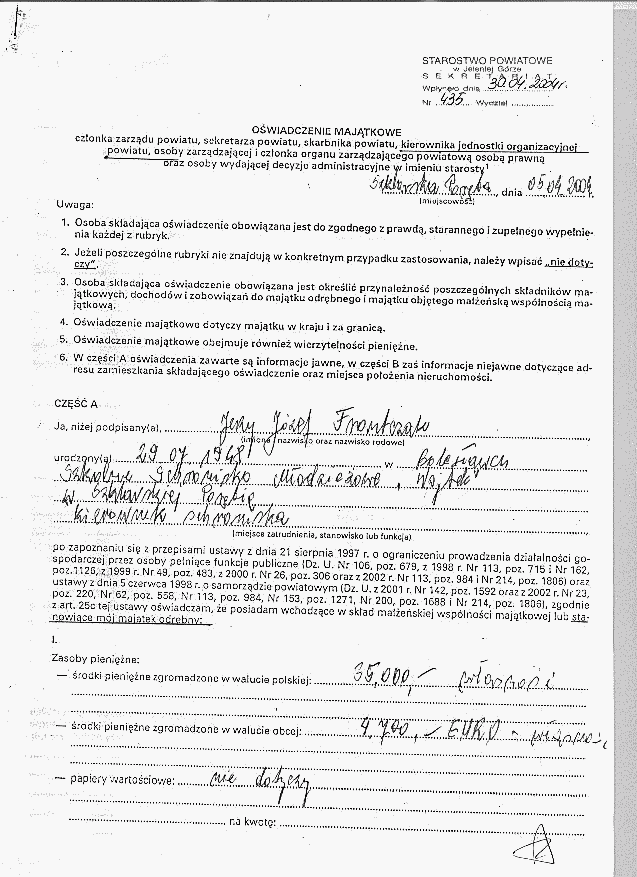 STAROSTWO POWIATOWE
w Jeleniej Górze
SEKRETARIAT
Wpłynęło dnia 30.04.2004r.
Nr 435 Wydział
OŚWIADCZENIE MAJĄTKOWE
członka zarządu powiatu, sekretarza powiatu, skarbnika powiatu, kierownika jednostki organizacyjnej
powiatu, osoby zarządzającej i członka organu zarządzającego powiatową osobą prawną
oraz osoby wydającej decyzje administracyjne w imieniu starosty¹
Szklarska Poręba, dnia 05.04.2004
(miejscowość)
Uwaga:
1. Osoba składająca oświadczenie obowiązana jest do zgodnego z prawdą, starannego i zupełnego wypełnie-
nia każdej z rubryk.
2. Jeżeli poszczególne rubryki nie znajdują w konkretnym przypadku zastosowania, należy wpisać „nie doty-
czy".
3. Osoba składająca oświadczenie obowiązana jest określić przynależność poszczególnych składników ma-
jątkowych, dochodów i zobowiązań do majątku odrębnego i majątku objętego małżeńską wspólnością ma-
jątkową.
4. Oświadczenie majątkowe dotyczy majątku w kraju i za granicą.
5. Oświadczenie majątkowe obejmuje również wierzytelności pieniężne.
6. W części A oświadczenia zawarte są informacje jawne, w części B zaś informacje niejawne dotyczące ad-
resu zamieszkania składającego oświadczenie oraz miejsca położenia nieruchomości.
CZĘŚĆ A
Ja, niżej podpisany(a), Jerzy Józef
(imiona i nazwisko oraz nazwisko rodowe)
urodzony(a) 29 07 1948 w
Szkolne Schronisko Młodzieżowe „Wojtek"
w Szklarskiej Porębie
kierownik schroniska
(miejsce zatrudnienia, stanowisko lub funkcja)
po zapoznaniu się z przepisami ustawy z dnia 21 sierpnia 1997 r. o ograniczeniu prowadzenia działalności go-
spodarczej przez osoby pełniące funkcje publiczne (Dz. U. Nr 106, poz. 679, z 1998 r. Nr 113, poz. 715 i Nr 162,
poz. 1126, z 1999 r. Nr 49, poz. 483, z 2000 r. Nr 26, poz. 306 oraz z 2002 r. Nr 113, poz. 984 i Nr 214, poz. 1806) oraz
ustawy z dnia 5 czerwca 1998 r. o samorządzie powiatowym (Dz. U. z 2001 r. Nr 142, poz. 1592 oraz z 2002 r. Nr 23,
poz. 220, Nr 62, poz. 558, Nr 113, poz. 984, Nr 153, poz. 1271, Nr 200, poz. 1688 i Nr 214, poz. 1806), zgodnie
z art. 25c tej ustawy oświadczam, że posiadam wchodzące w skład małżeńskiej wspólności majątkowej lub sta-
nowiące mój majątek odrębny:
I.
Zasoby pieniężne:
— środki pieniężne zgromadzone w walucie polskiej: 35,000,-
— środki pieniężne zgromadzone w walucie obcej: 4,700,- EURO -
— papiery wartościowe: nie dotyczy
na kwotę: